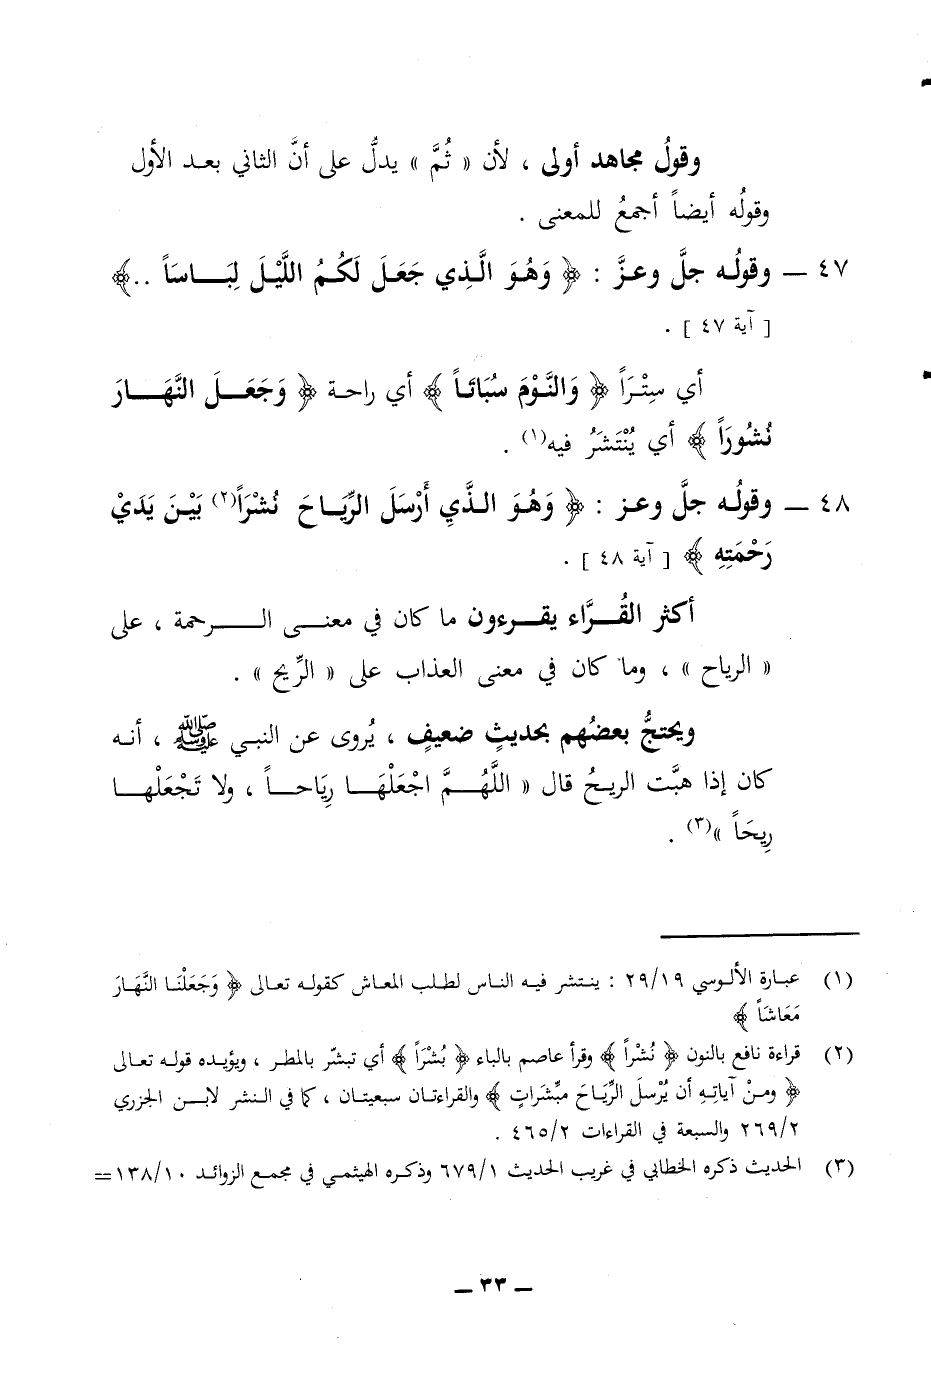 وقولُ مجاهد أولى ، لأن « ثُمَّ » يدلُّ على أنَّ الثاني بعد الأول
وقولُه أيضاً أجمعُ للمعنى .
٤٧ – وقولُه جلَّ وعزَّ : ﴿ وَهُوَ الَّذِي جَعَلَ لَكُمُ اللَّيْلَ لِبَاسَاً ..﴾
[ آية ٤٧ ] .
أي سِتْرَاً ﴿ وَالنَّوْمَ سُبَاتَاً ﴾ أي راحة ﴿ وَجَعَلَ النَّهَارَ
نُشُورَاً ﴾ أي يُنْتَشَرُ فيه(١) .
٤٨ – وقولُه جلَّ وعز : ﴿ وَهُوَ الذَّيِ أَرْسَلَ الرِّيَاحَ نُشْرَاً(٢) بَيْنَ يَدَيْ
رَحْمَتِهِ ﴾ [ آية ٤٨ ] .
أكثر القُرَّاء يقرءون ما كان في معنى الرحمة ، على
« الرياح » ، وما كان في معنى العذاب على « الرِّيح » .
ويحتجُّ بعضُهم بحديثٍ ضعيفٍ ، يُروى عن النبي ﷺ ، أنه
كان إذا هبَّت الريحُ قال « اللَّهُمَّ اجْعَلْهَا رِيَاحاً ، ولا تَجْعَلْها
رِيحَاً »(٣) .
(١) عبارة الألوسي ٢٩/١٩ : ينتشر فيه الناس لطلب المعاش كقوله تعالى ﴿ وَجَعَلْنَا النَّهَارَ
مَعَاشَاً ﴾
(٢) قراءة نافع بالنون ﴿ نُشْراً ﴾ وقرأ عاصم بالباء ﴿ بُشْرَاً ﴾ أي تبشّر بالمطر ، ويؤيده قوله تعالى
﴿ ومنْ آياتِهِ أن يُرْسلَ الرِّيَاحَ مبِّشَراتٍ ﴾ والقراءتان سبعيتان ، كما في النشر لابن الجزري
٢٦٩/٢ والسبعة في القراءات ٤٦٥/٢ .
(٣) الحديث ذكره الخطابي في غريب الحديث ٦٧٩/١ وذكره الهيثمي في مجمع الزوائد ١٣٨/١٠ =
– ٣٣ –